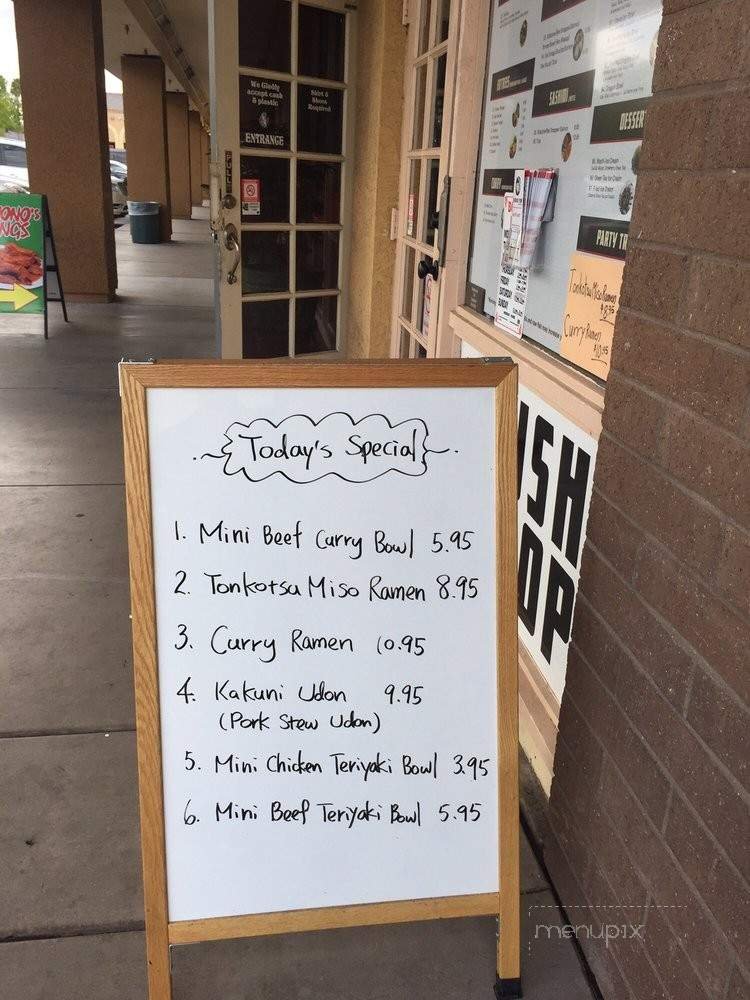 We Gladly
accept cash
& plastic
Shirt &
Shoes
Required
ENTRANCE
PULL
SASHIMI
DESSER
CURRY
PARTY TR
THURSDAY
FRIDAY
SATURDAY
SUNDAY
Tonkotsu Miso Ramen
$8.95
Curry Ramen
$10.95
SH
OP
Today's Special
1. Mini Beef Curry Bowl 5.95
2. Tonkotsu Miso Ramen 8.95
3. Curry Ramen 10.95
4. Kakuni Udon 9.95
(Pork Stew Udon)
5. Mini Chicken Teriyaki Bowl 3.95
6. Mini Beef Teriyaki Bowl 5.95
menupix